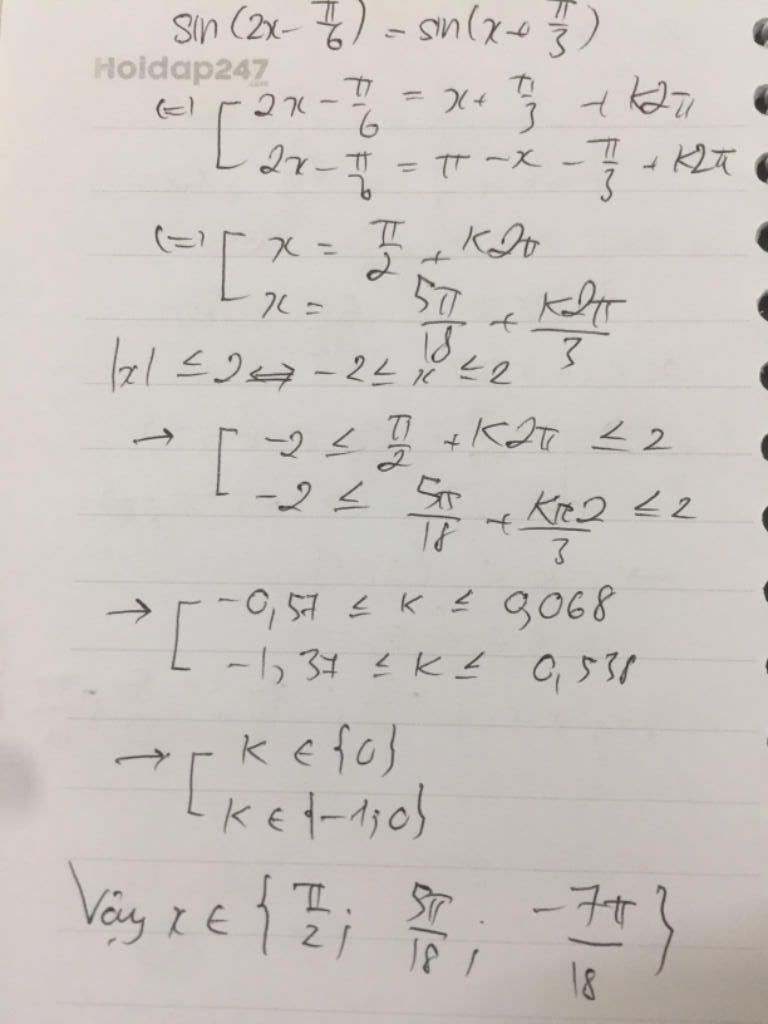 sin(2x - π/6) = sin(x + π/3)
Hoidap247
.com
(=) [ 2x - π/6 = x + π/3 + K2π
2x - π/6 = π - x - π/3 + K2π
(=) [ x = π/2 + K2π
x = 5π/18 + K2π/3
|x| ≤ 2 ⇔ -2 ≤ x ≤ 2
→ [ -2 ≤ π/2 + K2π ≤ 2
-2 ≤ 5π/18 + Kπ2/3 ≤ 2
→ [ -0,57 ≤ K ≤ 0,068
-1,37 ≤ K ≤ 0,538
→ [ K ∈ {0}
K ∈ {-1; 0}
Vậy x ∈ { π/2 ; 5π/18 ; -7π/18 }